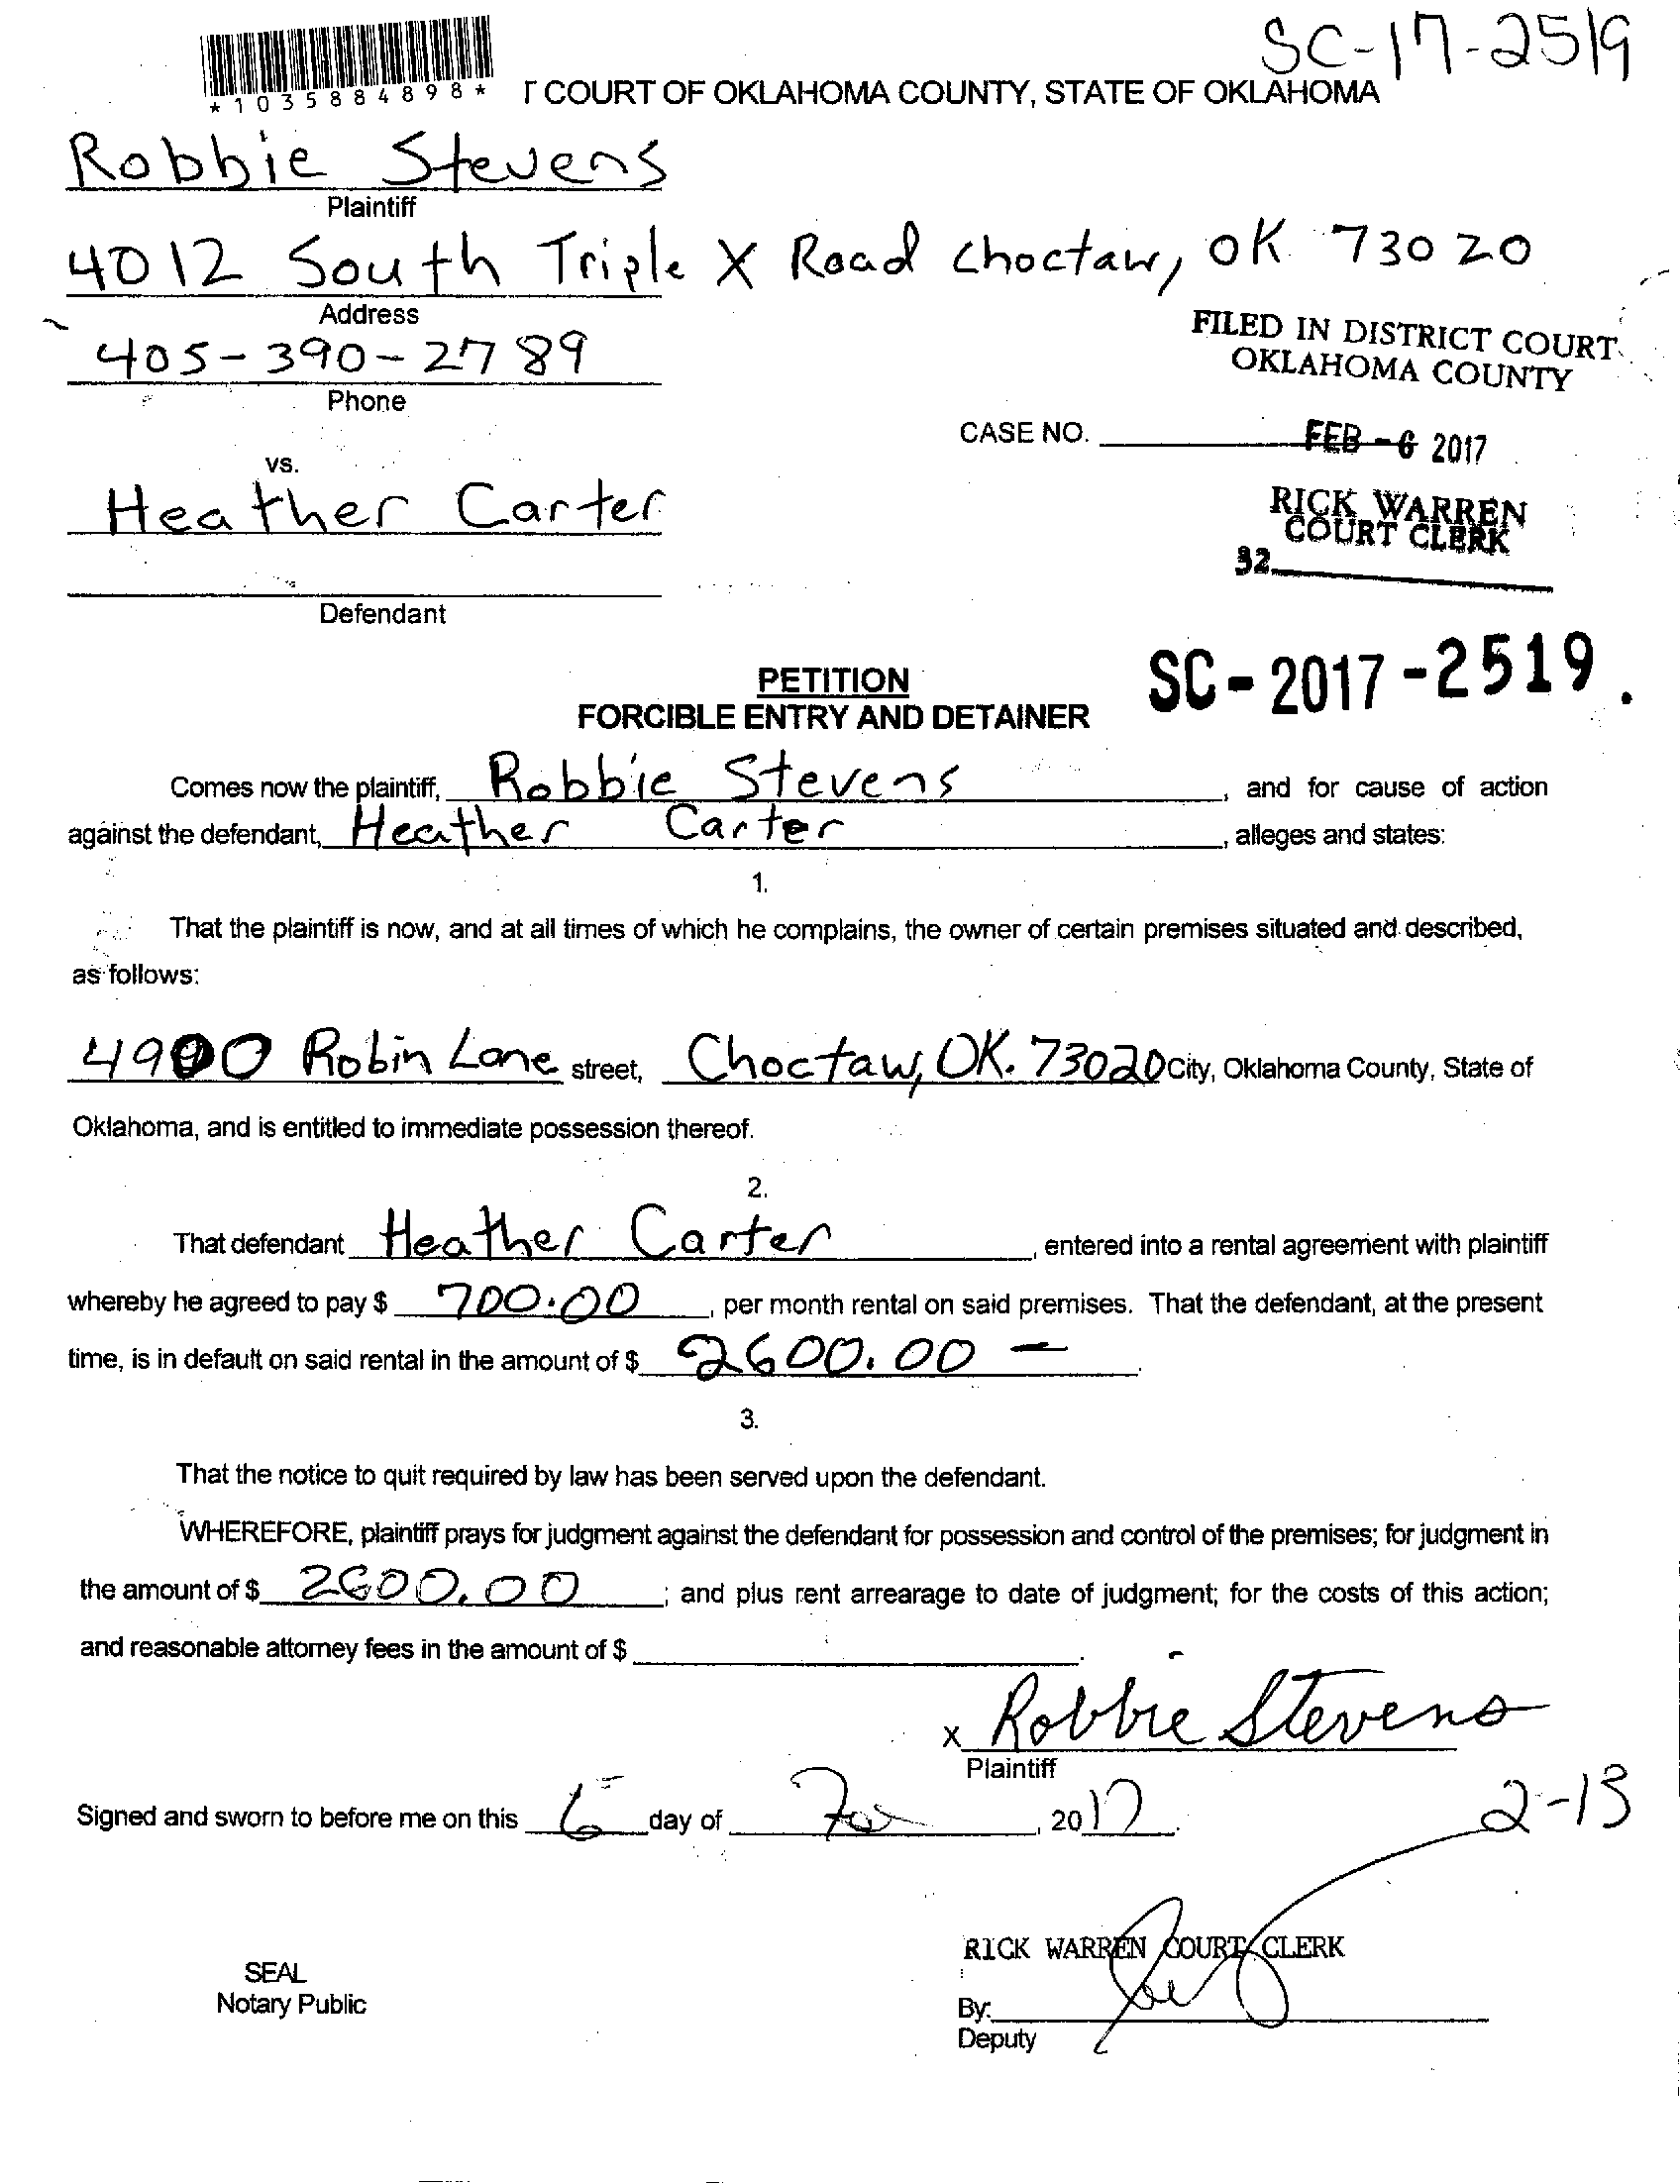 SC-17-2519
*1035884898*
T COURT OF OKLAHOMA COUNTY, STATE OF OKLAHOMA
Robbie Stevens
Plaintiff
4012 South Triple X Road Choctaw, OK 73020
Address
FILED IN DISTRICT COURT
OKLAHOMA COUNTY
405-390-2789
Phone
CASE NO.
FEB - 6 2017
vs.
Heather Carter
RICK WARREN
COURT CLERK
32
Defendant
SC - 2017 - 2519
PETITION
FORCIBLE ENTRY AND DETAINER
Comes now the plaintiff, Robbie Stevens, and for cause of action
against the defendant, Heather Carter, alleges and states:
1.
That the plaintiff is now, and at all times of which he complains, the owner of certain premises situated and described,
as follows:
4900 Robin Lane street, Choctaw, OK. 73020 City, Oklahoma County, State of
Oklahoma, and is entitled to immediate possession thereof.
2.
That defendant Heather Carter, entered into a rental agreement with plaintiff
whereby he agreed to pay $ 700.00, per month rental on said premises. That the defendant, at the present
time, is in default on said rental in the amount of $ 2600.00 —.
3.
That the notice to quit required by law has been served upon the defendant.
WHEREFORE, plaintiff prays for judgment against the defendant for possession and control of the premises; for judgment in
the amount of $ 2600.00; and plus rent arrearage to date of judgment; for the costs of this action;
and reasonable attorney fees in the amount of $ .
x Robbie Stevens
Plaintiff
2-13
Signed and sworn to before me on this 6 day of , 2017.
RICK WARREN COURT CLERK
SEAL
Notary Public
By:
Deputy